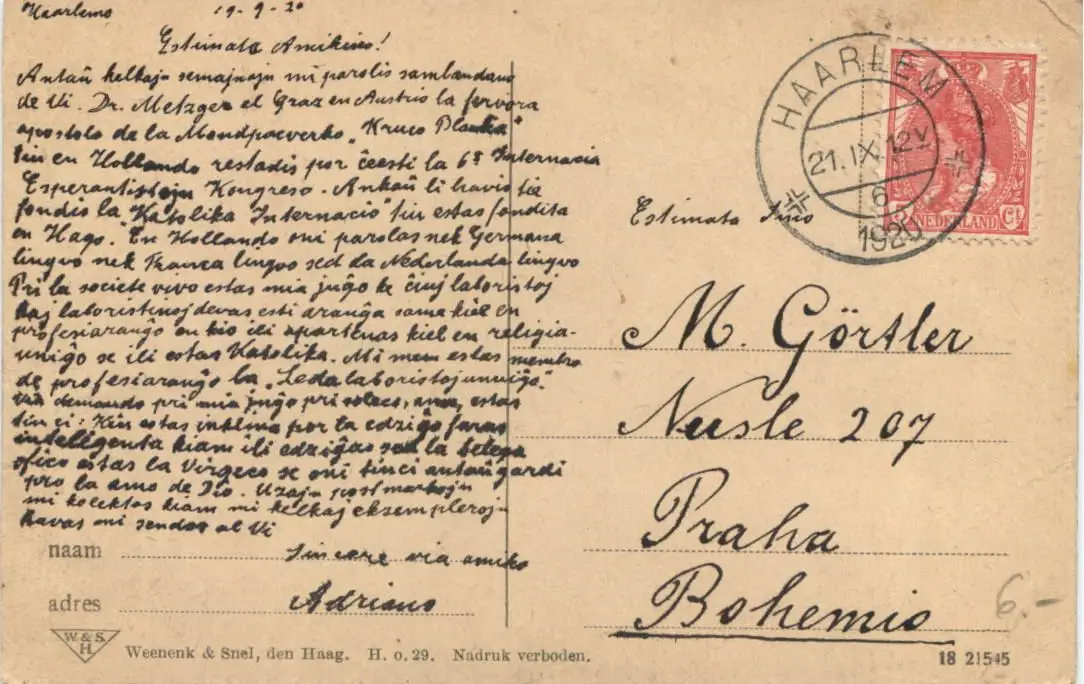 Haarlemo 19-9-20
Estimata Amikino!
Antaŭ kelkaj semajnoj mi parolis sambandano
de Vi. Dr. Metzger el Graz en Austrio la fervora
apostolo de la Mondpacverko "Kruco Blanka"
tiu en Hollando restadis por ĉeesti la 6ª Internacia
Esperantistoju Kongreso. Ankaŭ li havis tie
fondis la "Katolika Internacio" tiu estas fondita
en Hago. En Hollando oni parolas nek Germana
lingvo nek Franca lingvo sed la Nederlanda lingvo
Pri la societe vivo estas mia juĝo ke ĉiuj laboristoj
kaj laboristinoj devas esti aranĝa sama kiel en
profesiaranĝo en kio ili apartenas kiel en religia-
unuiĝo se ili estas Katolika. Mi mem estas membro
de profesiaranĝo la "Ledalaboristojunuiĝo."
Via demando pri mia juĝo pri estas
tiu ci: Kiu estas inklina por la edziĝo faras
inteligenta kiam ili edziĝas sed la belega
ofico estas la Virgeco se oni tinci antaŭgardi
pro la amo de Dio. Uzaju postmarkojn
mi kolektas kiam mi kelkaj eksemplerojn
havas mi sendos al Vi
naam Sincere via amiko
adres Adriano
W. & S.
H.
Weenenk & Snel, den Haag. H. o. 29. Nadruk verboden.
HAARLEM
21.IX.12V
6
1920
NEDERLAND
Ct
Estimata Sino
M. Görtler
Nusle 207
Praha
Bohemio
6.-
18 21545